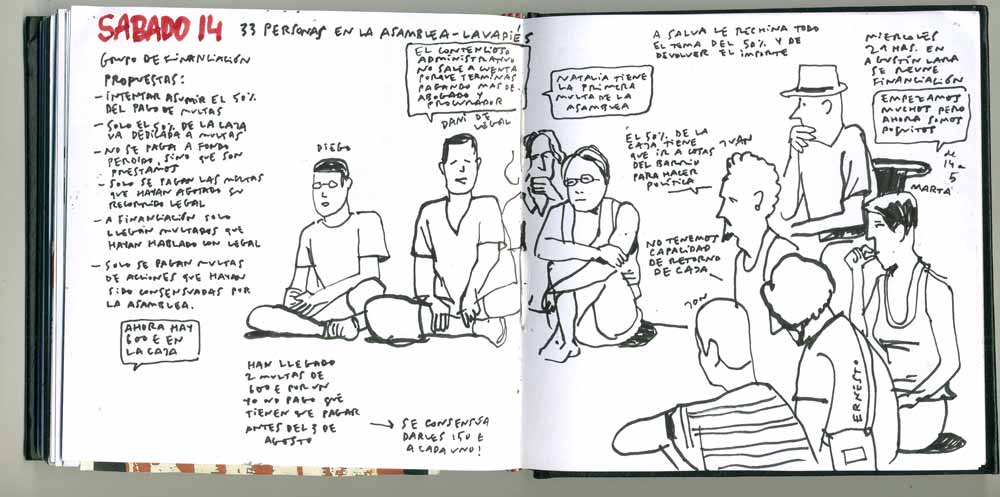 SABADO 14
33 PERSONAS EN LA ASAMBLEA-LAVAPIÉS
GRUPO DE FINANCIACIÓN
PROPUESTAS:
- INTENTAR ASUMIR EL 50%
DEL PAGO DE MULTAS
- SOLO EL 50% DE LA CAJA
VA DEDICADA A MULTAS
- NO SE PAGA A FONDO
PERDIDO, SINO QUE SON
PRESTAMOS
- SOLO SE PAGAN LAS MULTAS
QUE HAYAN AGOTADO SU
RECORRIDO LEGAL
- A FINANCIACIÓN SOLO
LLEGAN MULTADOS QUE
HAYAN HABLADO CON LEGAL
- SOLO SE PAGAN MULTAS
DE ACCIONES QUE HAYAN
SIDO CONSENSUADAS POR
LA ASAMBLEA.
AHORA HAY
600 € EN
LA CAJA
DIEGO
EL CONTENCIOSO
ADMINISTRATIVO
NO SALE A CUENTA
PORQUE TERMINAS
PAGANDO MAS DE
ABOGADO Y
PROCURADOR
DANI DE
LEGAL
HAN LLEGADO
2 MULTAS DE
600 € POR UN
YO NO PAGO QUE
TIENEN QUE PAGAR
ANTES DEL 3 DE
AGOSTO
→ SE CONSENSUA
DARLES 150 €
A CADA UNO!
NATALIA TIENE
LA PRIMERA
MULTA DE LA
ASAMBLEA
A SALVA LE RECHINA TODO
EL TEMA DEL 50% Y DE
DEVOLVER EL IMPORTE
EL 50% DE LA
CAJA TIENE
QUE IR A COSAS
DEL BARRIO
PARA HACER
POLÍTICA
IVÁN
NO TENEMOS
CAPACIDAD
DE RETORNO
DE CAJA
JON
MIERCOLES
21 HAS. EN
AGUSTÍN LARA
SE REUNE
FINANCIACIÓN
EMPEZAMOS
MUCHOS PERO
AHORA SOMOS
POQUITOS
de
4 a
5
MARTA
ERNESTO